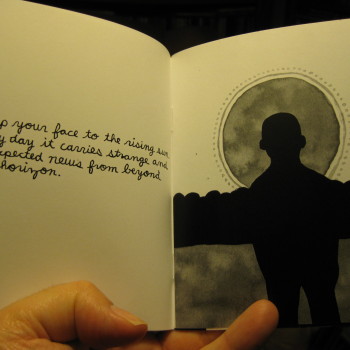 p your face to the rising sun.
y day it carries strange and
xpected news from beyond
horizon.